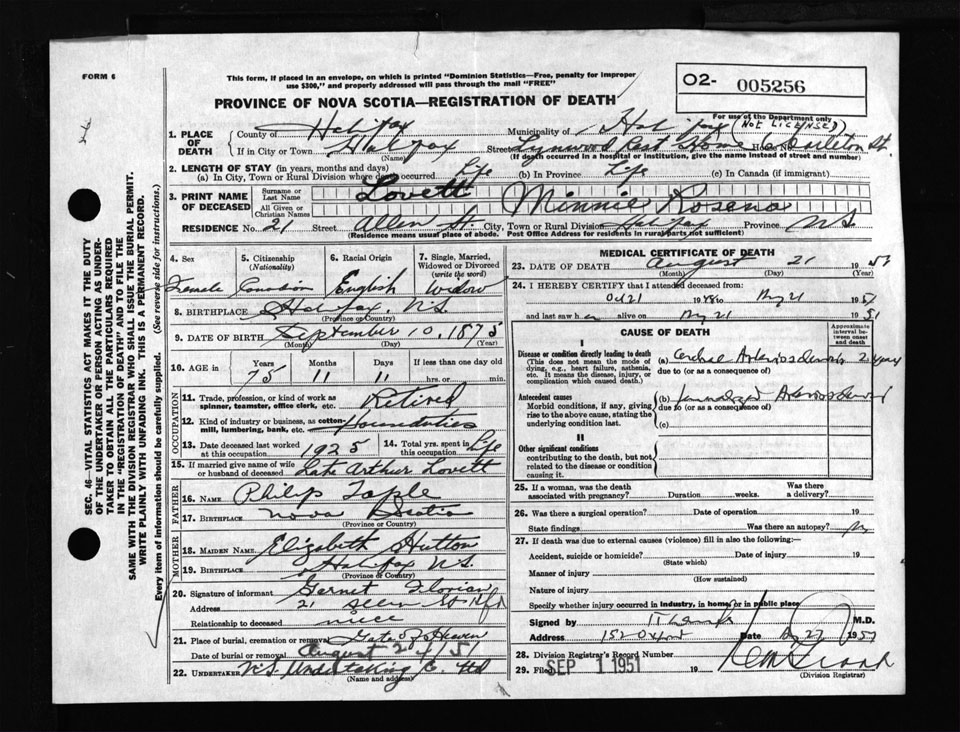 FORM 6
This form, if placed in an envelope, on which is printed "Dominion Statistics—Free, penalty for improper
use $300," and properly addressed will pass through the mail "FREE"
O2- 005256
For use of the Department only
PROVINCE OF NOVA SCOTIA—REGISTRATION OF DEATH
(NOT LICENSED)
1. PLACE OF DEATH { County of Halifax Municipality of Halifax
If in City or Town Halifax (Name) Street Rest Home St.
(If death occurred in a hospital or institution, give the name instead of street and number)
2. LENGTH OF STAY (in years, months and days)
(a) In City, Town or Rural Division where death occurred Life (b) In Province Life (c) In Canada (if immigrant)
3. PRINT NAME OF DECEASED { Surname or Last Name Lovett
All Given or Christian Names Minnie Rosena
RESIDENCE No. 21 Street Allen St. City, Town or Rural Division Halifax Province NS
(Residence means usual place of abode. Post Office Address for residents in rural parts not sufficient)
4. Sex
Female
5. Citizenship (Nationality)
Canadian
6. Racial Origin
English
7. Single, Married, Widowed or Divorced (write the word)
Widow
8. BIRTHPLACE Halifax, N.S.
(Province or Country)
9. DATE OF BIRTH September 10, 1875
(Month) (Day) (Year)
10. AGE in { Years Months Days If less than one day
75 11 11 hrs. or min.
OCCUPATION
11. Trade, profession, or kind of work as spinner, teamster, office clerk, etc. Retired
12. Kind of industry or business, as cotton-mill, lumbering, bank, etc.
13. Date deceased last worked at this occupation 1925
14. Total yrs. spent in this occupation Life
15. If married give name of wife or husband of deceased Late Arthur Lovett
FATHER
16. NAME Philip
17. BIRTHPLACE Nova Scotia
(Province or Country)
MOTHER
18. MAIDEN NAME Elizabeth Hutton
19. BIRTHPLACE Halifax N.S.
(Province or Country)
20. Signature of informant
Address 21 Allen St Hfx
Relationship to deceased niece
21. Place of burial, cremation or removal Gate of Heaven
Date of burial or removal August 24/51
22. UNDERTAKER N.S. Undertaking C. Ltd
(Name and address)
MEDICAL CERTIFICATE OF DEATH
23. DATE OF DEATH August 21 1951
(Month) (Day) (Year)
24. I HEREBY CERTIFY that I attended deceased from:
Oct 21 19 to Aug 21 1951
and last saw h er alive on Aug 21 1951
CAUSE OF DEATH
Approximate interval between onset and death
I
Disease or condition directly leading to death
(This does not mean the mode of dying, e.g., heart failure, asthenia, etc. It means the disease, injury, or complication which caused death.)
(a) Cerebral Arteriosclerosis 2 years
due to (or as a consequence of)
Antecedent causes
Morbid conditions, if any, giving rise to the above cause, stating the underlying condition last.
(b) Generalized Arteriosclerosis
due to (or as a consequence of)
(c)
II
Other significant conditions
contributing to the death, but not related to the disease or condition causing it.
25. If a woman, was the death associated with pregnancy? Duration weeks. Was there a delivery?
26. Was there a surgical operation? Date of operation 19
State findings Was there an autopsy? No
27. If death was due to external causes (violence) fill in also the following:—
Accident, suicide or homicide? Date of injury 19
(State which)
Manner of injury
(How sustained)
Nature of injury
Specify whether injury occurred in industry, in home, or in public place
Signed by M.D.
Address 152 Oxford Date Aug 27 1951
28. Division Registrar's Record Number
29. Filed SEP 1 1951
(Division Registrar)
SEC. 46—VITAL STATISTICS ACT MAKES IT THE DUTY
OF THE UNDERTAKER OR PERSON ACTING AS UNDER-
TAKER TO OBTAIN ALL THE PARTICULARS REQUIRED
IN THE "REGISTRATION OF DEATH" AND TO FILE THE
SAME WITH THE DIVISION REGISTRAR WHO SHALL ISSUE THE BURIAL PERMIT.
WRITE PLAINLY WITH UNFADING INK. THIS IS A PERMANENT RECORD.
Every item of information should be carefully supplied. (See reverse side for instructions.)